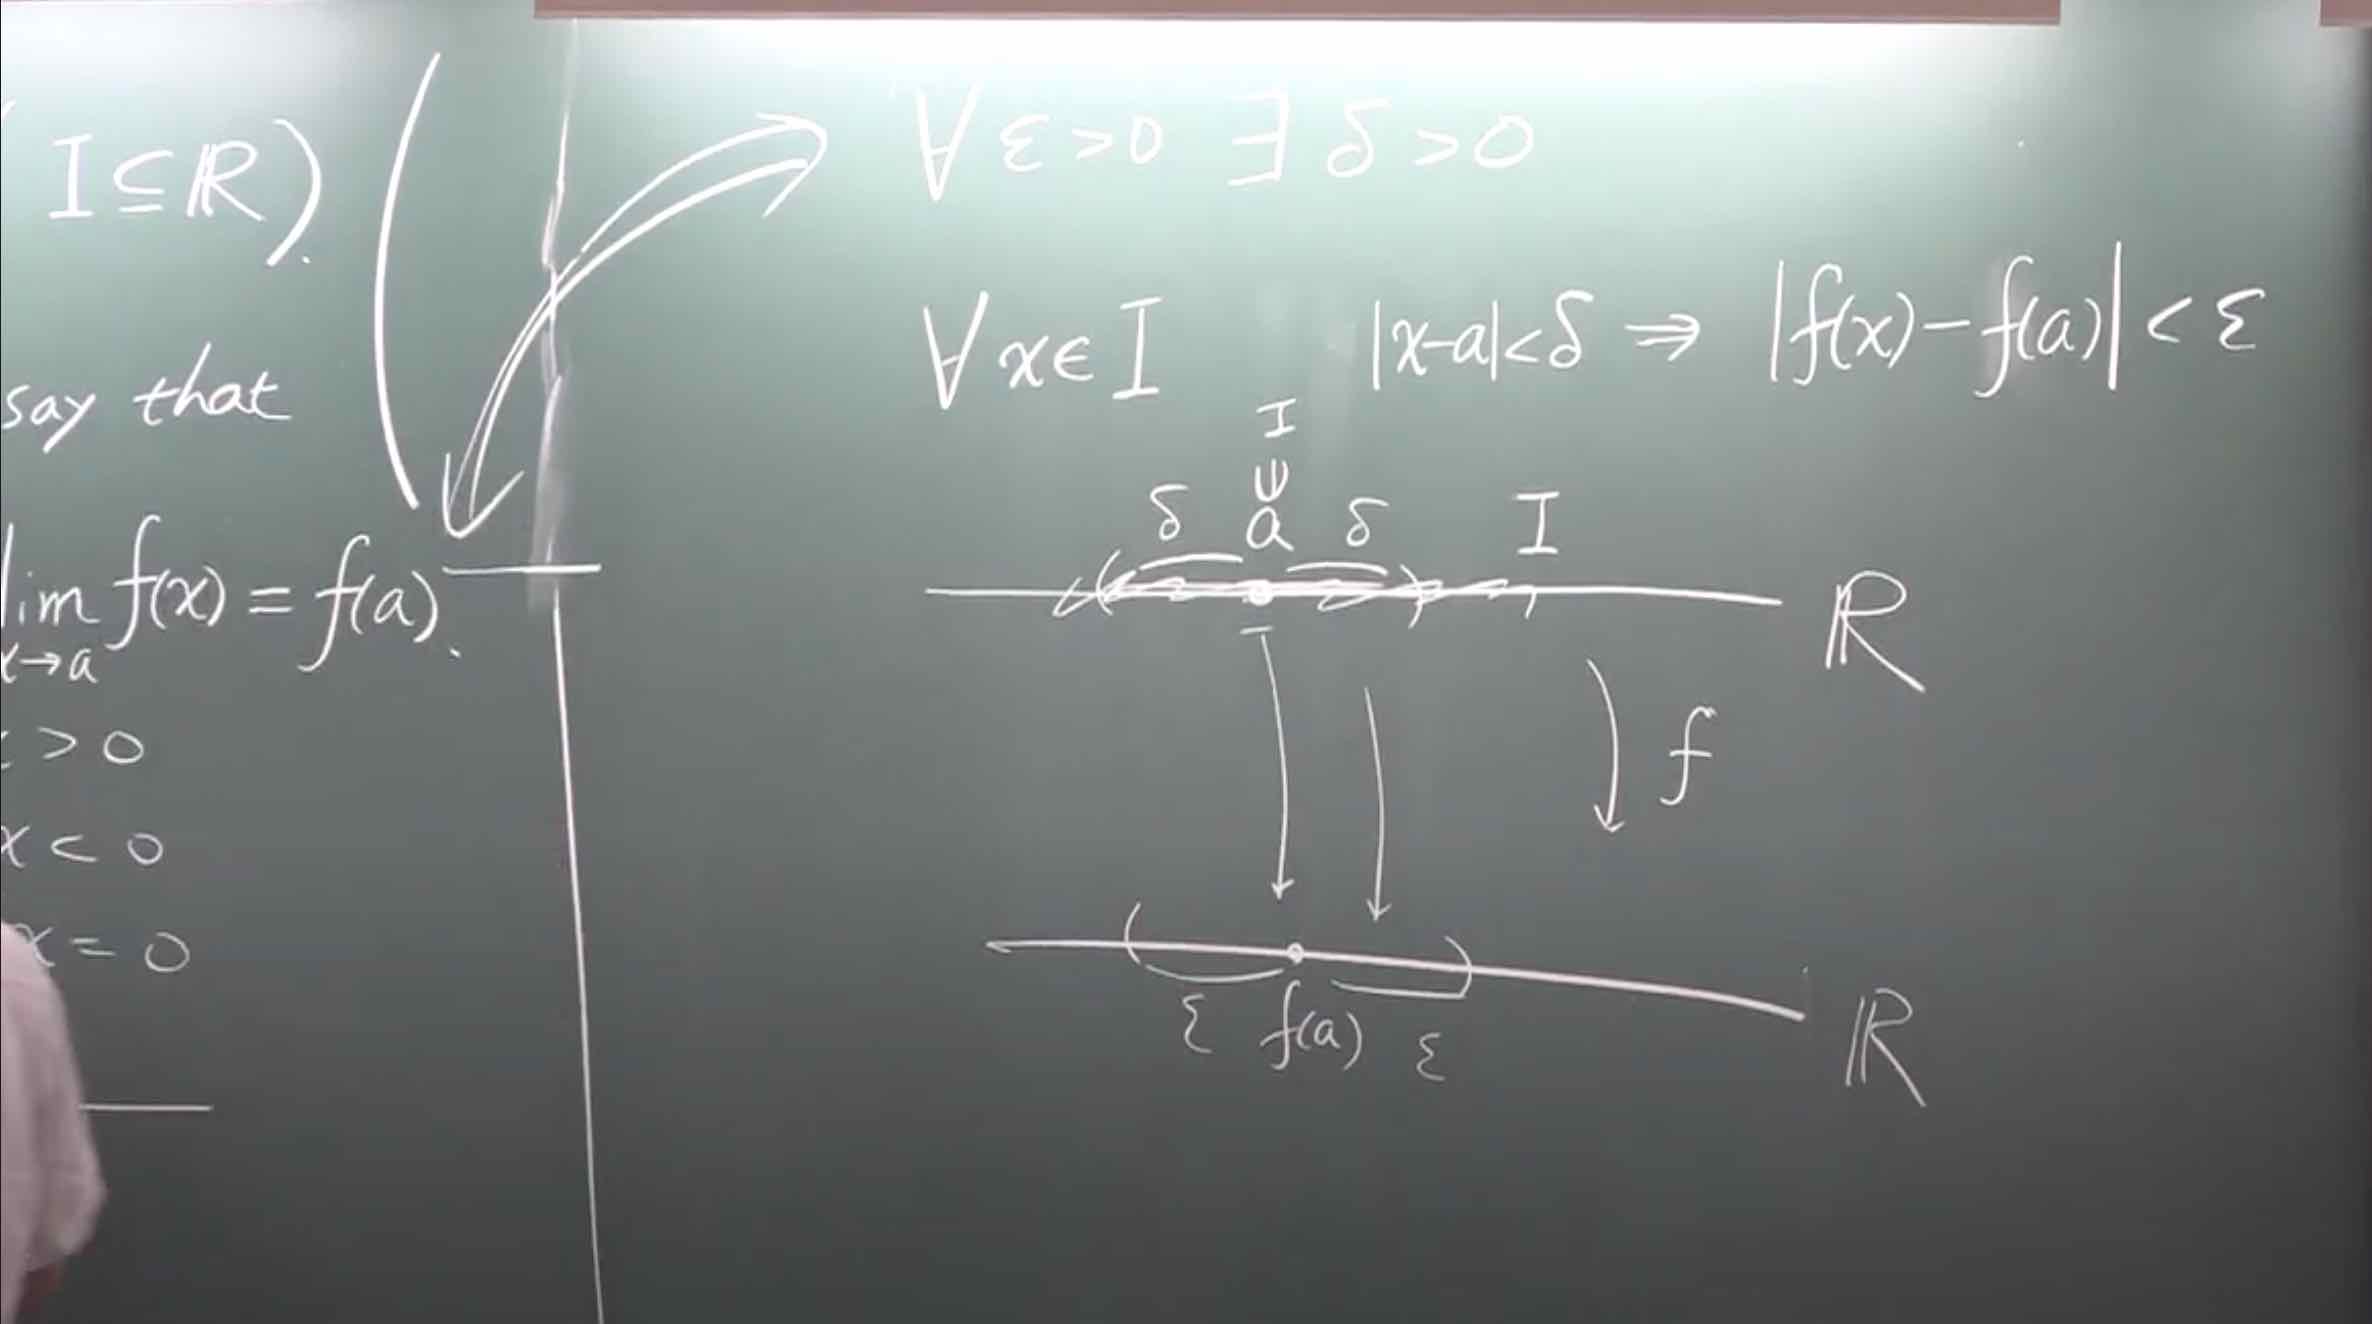 I ⊆ ℝ).
say that
lim f(x) = f(a).
x→a
> 0
x < 0
x = 0
∀ ε > 0 ∃ δ > 0
∀ x ∈ I |x-a| < δ ⇒ |f(x) - f(a)| < ε
I
ψ
δ a δ I
ℝ
f
ε f(a) ε
ℝ